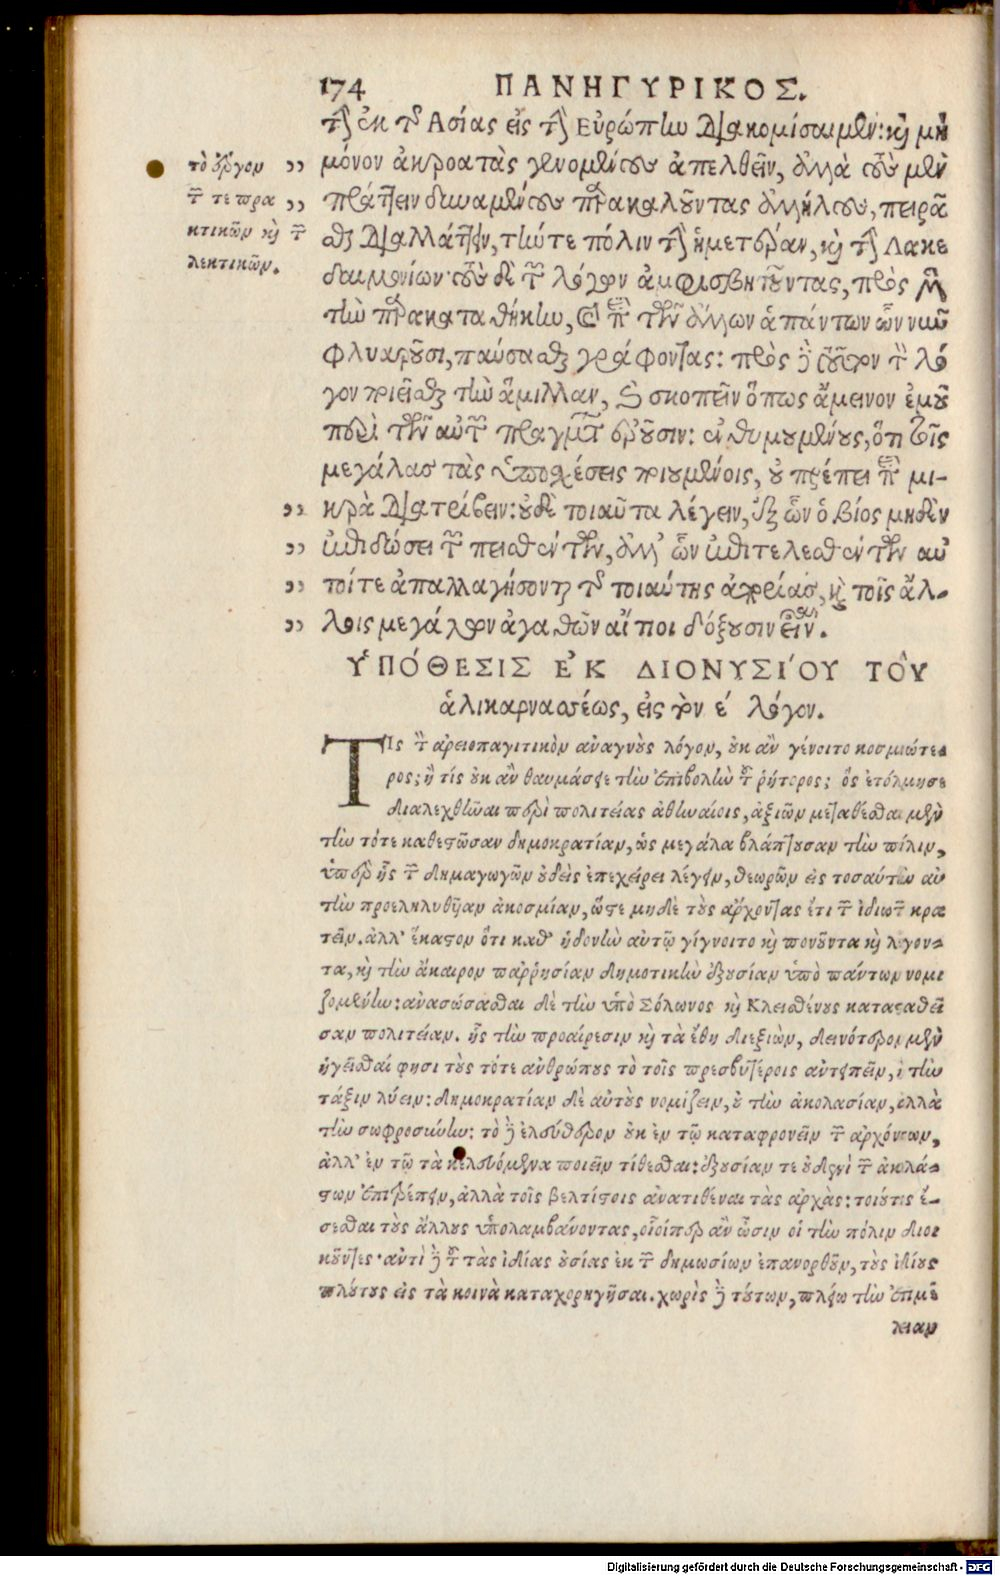 174 ΠΑΝΗΓΥΡΙΚΟΣ.
τὴν ἐκ τῆς Ἀσίας εἰς τὴν Εὐρώπην διακομίσαιμεν: καὶ μὴ
μόνον ἀκροατὰς γενομένους ἀπελθεῖν, ἀλλὰ τοὺς μὲν
πράττειν δυναμένους παρακαλοῦντας ἀλλήλους, πειρᾶ
σθαι διαλλάττειν, τήν τε πόλιν τὴν ἡμετέραν, καὶ τὴν Λακε
δαιμονίων· τοὺς δὲ τῶν λόγων ἀμφισβητοῦντας, πρὸς μὲν
τὴν παρακαταθήκην, καὶ περὶ τῶν ἄλλων ἁπάντων ὧν νῦν
φλυαροῦσι, παύσασθαι γράφοντας: πρὸς δὲ τοῦτον τὸν λό
γον ποιεῖσθαι τὴν ἅμιλλαν, καὶ σκοπεῖν ὅπως ἄμεινον ἐμοῦ
περὶ τῶν αὐτῶν πραγμάτων ἐροῦσιν: ἐνθυμουμένους, ὅτι τοῖς
μεγάλας τὰς ὑποσχέσεις ποιουμένοις, οὐ πρέπει περὶ μι-
κρὰ διατρίβειν: οὐδὲ τοιαῦτα λέγειν, ἐξ ὧν ὁ βίος μηδὲν
ἐπιδώσει τῶν πεισθέντων, ἀλλ' ὧν ἐπιτελεσθέντων αὐ
τοί τε ἀπαλλαγήσονται τῆς τοιαύτης ἀπορίας, καὶ τοῖς ἄλ-
λοις μεγάλων ἀγαθῶν αἴτιοι δόξουσιν εἶναι.
τὸ ἔργον
τῶν τε πρα
κτικῶν καὶ τῶν
λεκτικῶν.
ὙΠΟ´ΘΕΣΙΣ Ε᾿Κ ΔΙΟΝΥΣΙ´ΟΥ ΤΟΥ͂
ἁλικαρνασέως, εἰς τὸν ε´ λόγον.
ΤΙς τὸν ἀρειοπαγιτικὸν ἀναγνοὺς λόγον, οὐκ ἂν γένοιτο κοσμιώτε-
ρος; ἢ τίς οὐκ ἂν θαυμάσειε τὴν ἐπιβολὴν τοῦ ῥήτορος; ὃς ἐτόλμησε
διαλεχθῆναι περὶ πολιτείας ἀθηναίοις, ἀξιῶν μεταθέσθαι μὲν
τὴν τότε καθεστῶσαν δημοκρατίαν, ὡς μεγάλα βλάπτουσαν τὴν πόλιν,
ὑπὲρ ἧς τῶν δημαγωγῶν οὐδεὶς ἐπεχείρει λέγειν, θεωρῶν εἰς τοσαύτην αὐ
τὴν προεληλυθῆαν ἀκοσμίαν, ὥστε μηδὲ τοὺς ἄρχοντας ἔτι τῶν ἰδιωτῶν κρα
τεῖν. ἀλλ' ἕκαστον ὅτι καθ' ἡδονὴν αὐτῷ γίγνοιτο καὶ ποιοῦντα καὶ λέγον-
τα, καὶ τὴν ἄκαιρον παῤῥησίαν δημοτικὴν ἐξουσίαν ὑπὸ πάντων νομι
ζομένην: ἀνασώσασθαι δὲ τὴν ὑπὸ Σόλωνος καὶ Κλεισθένους κατασταθεῖ
σαν πολιτείαν. ἧς τὴν προαίρεσιν καὶ τὰ ἔθη διεξιὼν, δεινότερον μὲν
ἡγεῖσθαί φησι τοὺς τότε ἀνθρώπους τὸ τοῖς πρεσβυτέροις ἀντειπεῖν, ἢ τὴν
τάξιν λύειν: δημοκρατίαν δὲ αὐτοὺς νομίζειν, οὐ τὴν ἀκολασίαν, ἀλλὰ
τὴν σωφροσύνην: τὸ δὲ ἐλεύθερον οὐκ ἐν τῷ καταφρονεῖν τῶν ἀρχόντων,
ἀλλ' ἐν τῷ τὰ κελευόμενα ποιεῖν τίθεσθαι: ἐξουσίαν τε οὐδενὶ τῶν ἀκολά-
στων ἐπιτρέπειν, ἀλλὰ τοῖς βελτίστοις ἀνατιθέναι τὰς ἀρχὰς: τοιούτους ἔ-
σεσθαι τοὺς ἄλλους ὑπολαμβάνοντας, οἷοίπερ ἂν ὦσιν οἱ τὴν πόλιν διοι
κοῦντες· ἀντὶ δὲ τοῦ τὰς ἰδίας οὐσίας ἐκ τῶν δημωσίων ἐπανορθοῦν, τοὺς ἰδίους
πλούτους εἰς τὰ κοινὰ καταχορηγῆσαι. χωρὶς δὲ τούτων, πλείω τὴν ἐπιμέ
λειαν
Digitalisierung gefördert durch die Deutsche Forschungsgemeinschaft - DFG